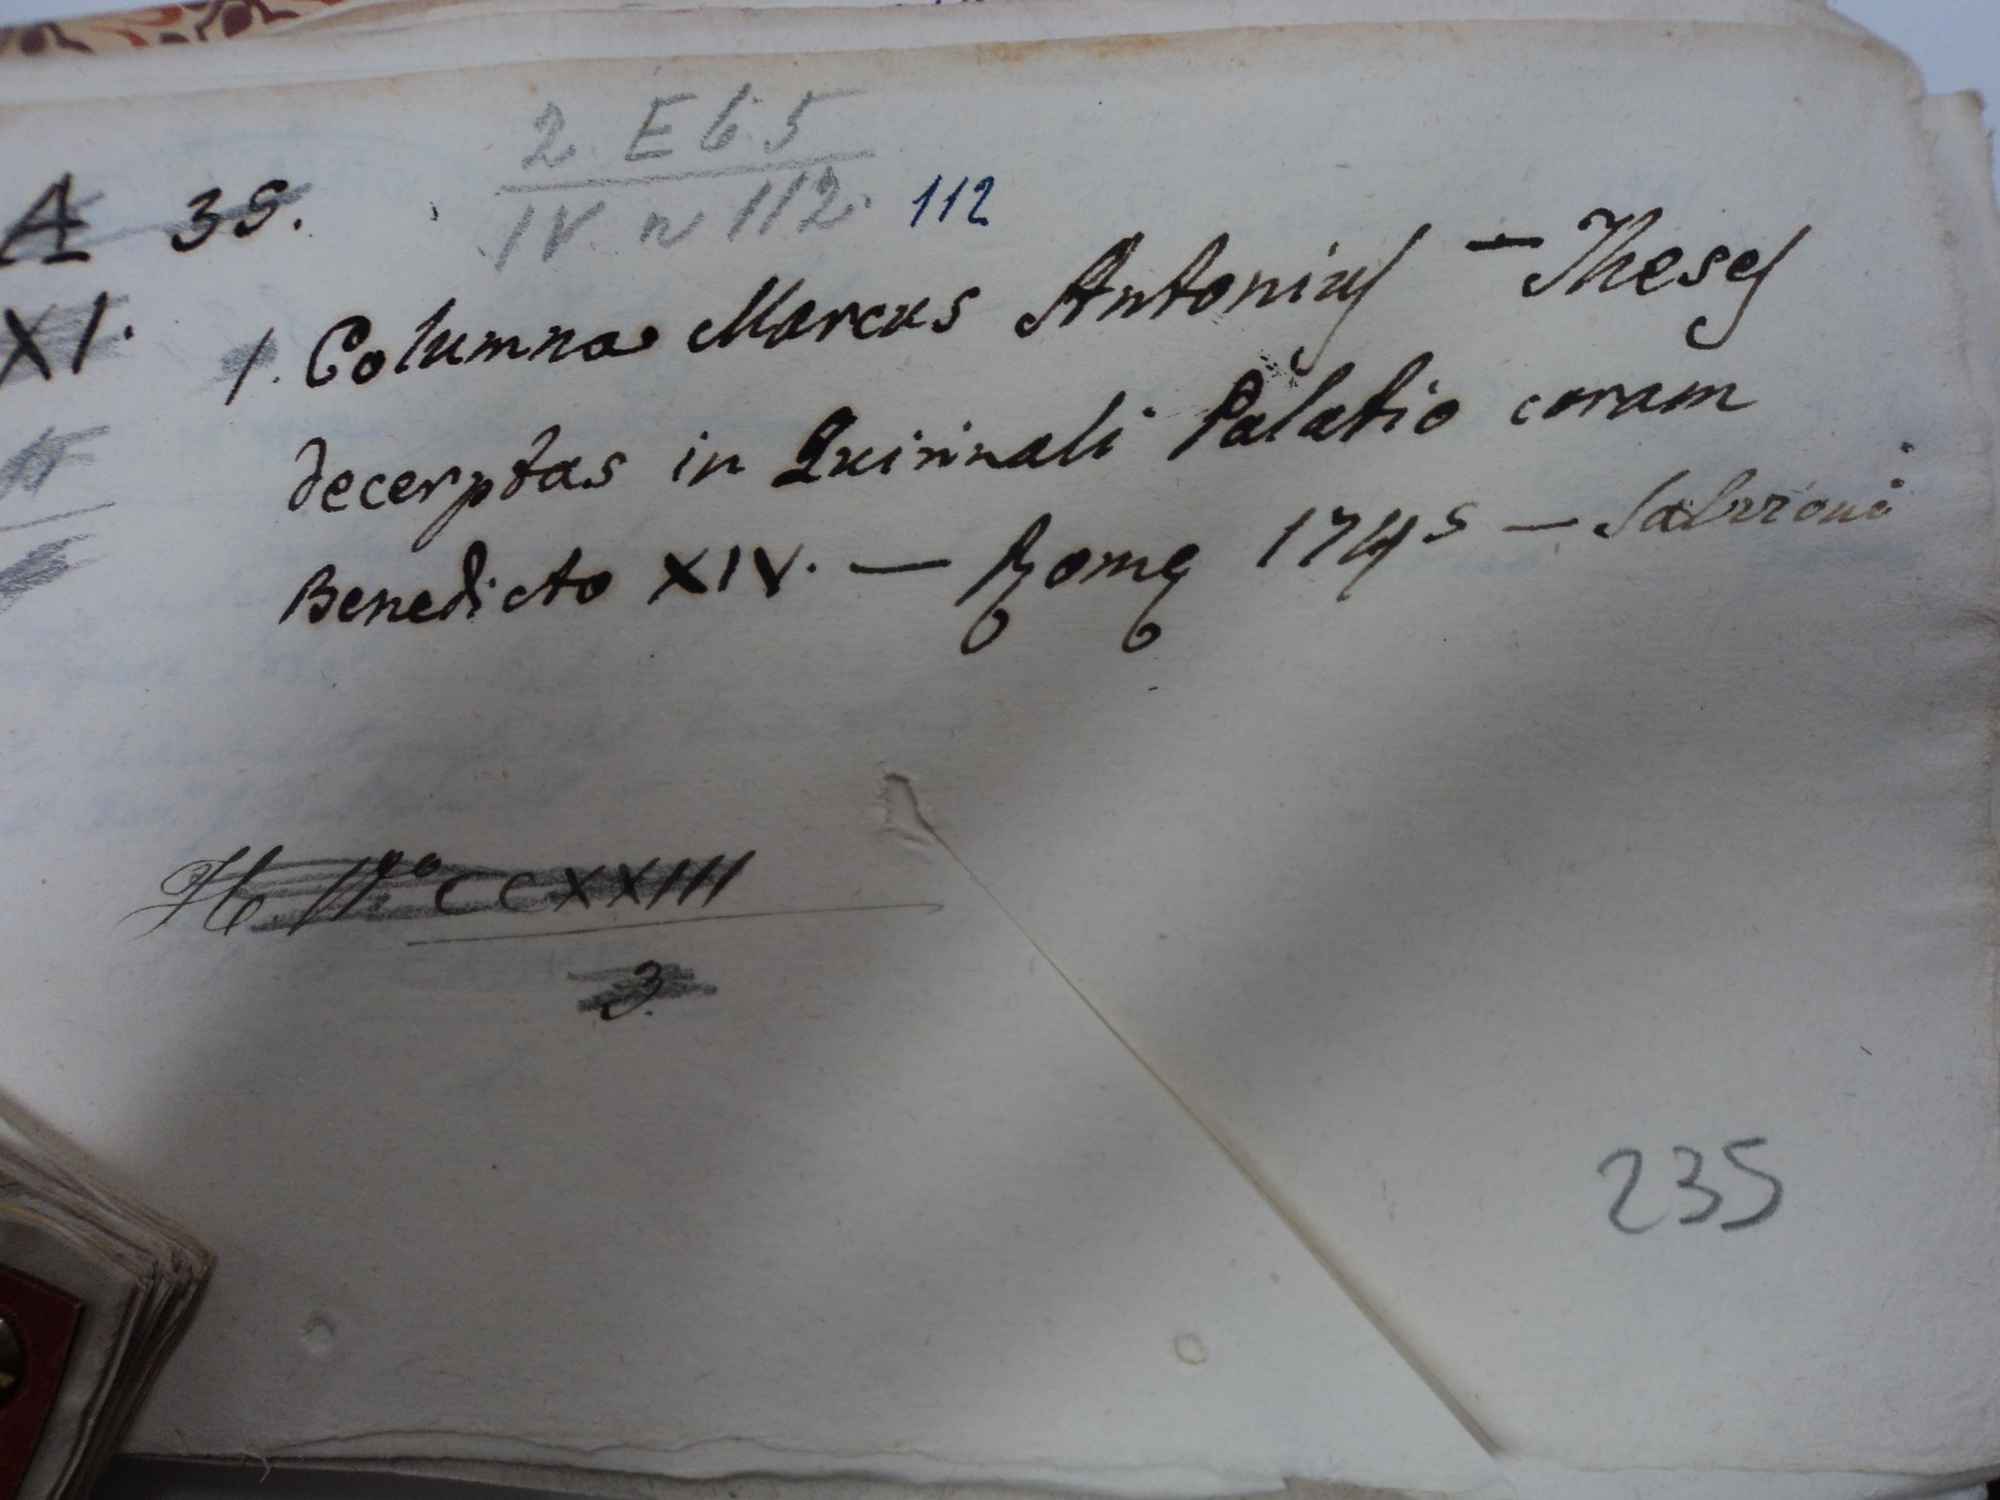 2. E 6. 5
A 35.
IV. n 112. 112
XI.
1. Columna Marcus Antonius — Theses
decerptas in Quirinali Palatio coram
Benedicto XIV. — Romę 1745 — Salvioni
H. N.º CCXXIII
3.
235